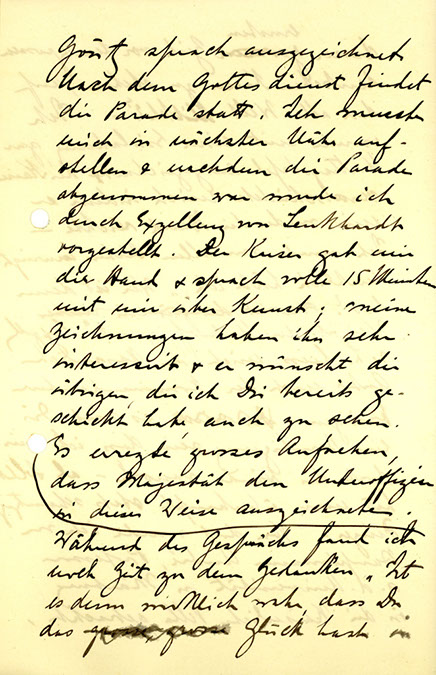 Göntz sprach ausgezeichnet.
Nach dem Gottesdienst findet
die Parade statt. Ich musste
mich in nächster Nähe auf-
stellen & nachdem die Parade
abgenommen war wurde ich
durch Exzellenz von Lenkhardt
vorgestellt. Der Kaiser gab mir
die Hand & sprach volle 15 Minuten
mit mir über Kunst; meine
Zeichnungen haben ihn sehr
interessiert & er wünscht die
übrigen, die ich Dir bereits ge-
schickt habe, auch zu sehen.
Es erregte grosses Aufsehen,
dass Majestät den Unteroffizier
in dieser Weise auszeichneten.
Während des Gesprächs fand ich
noch Zeit zu dem Gedanken „Ist
es denn wirklich wahr, dass Du
das grosse, grosse Glück hast in